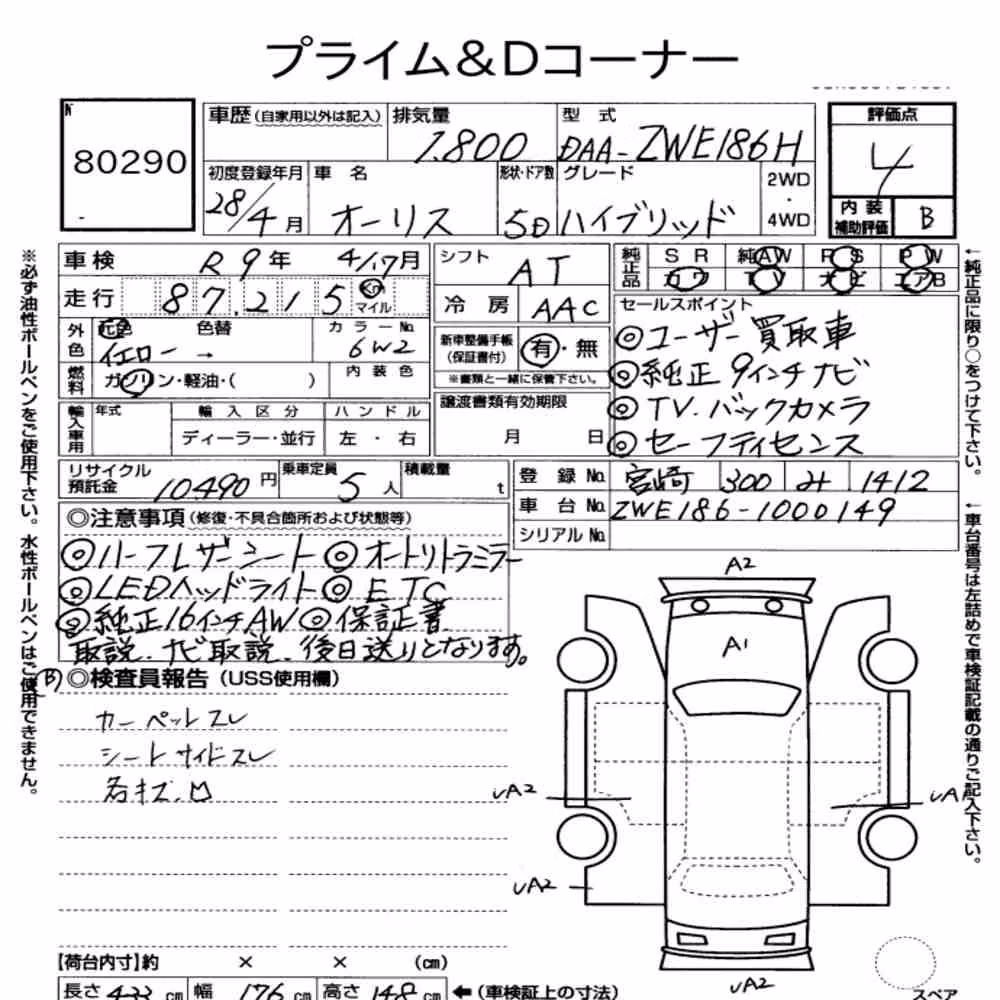 プライム＆Dコーナー
80290
車歴（自家用以外は記入） 排気量 1.800 型式 DAA-ZWE186H
評価点 4
内装補助評価 B
初度登録年月 28/4月 車名 オーリス 形状・ドア数 5D グレード ハイブリッド 2WD・4WD
車検 R9年 4/17月
走行 87,215 Km マイル
シフト AT
冷房 AAC
純正品 SR 純AW RS PW
カワ TV ナビ エアB
外色 元色 イエロー → 色替 カラーNo. 6W2
燃料 ガソリン・軽油・（ ） 内装色
新車整備手帳（保証書付） 有・無
※書類と一緒に保管下さい。
譲渡書類有効期限
月 日
輸入車用 年式 輸入区分 ハンドル
ディーラー・並行 左・右
セールスポイント
◎ユーザー買取車
◎純正9インチナビ
◎TV.バックカメラ
◎セーフティセンス
リサイクル預託金 10490円 乗車定員 5人 積載量 t
登録No. 宮崎 300 み 1412
車台No. ZWE186-1000149
シリアルNo.
◎注意事項（修復・不具合箇所および状態等）
◎ハーフレザーシート◎オートリトラミラー
◎LEDヘッドライト◎ETC
◎純正16インチAW◎保証書
取説.ナビ取説.後日送りとなります。
(B) ◎検査員報告（USS使用欄）
カーペットスレ
シートサイドスレ
A2
A1
UA2
UA2
UA2
【荷台内寸】約 × × （cm）
長さ 433 cm 幅 176 cm 高さ 148 cm ←（車検証上の寸法）
スペア
※必ず油性ボールペンをご使用下さい。水性ボールペンはご使用できません。
←純正品に限り○をつけて下さい。
←車台番号は左詰めで車検証記載の通りご記入下さい。